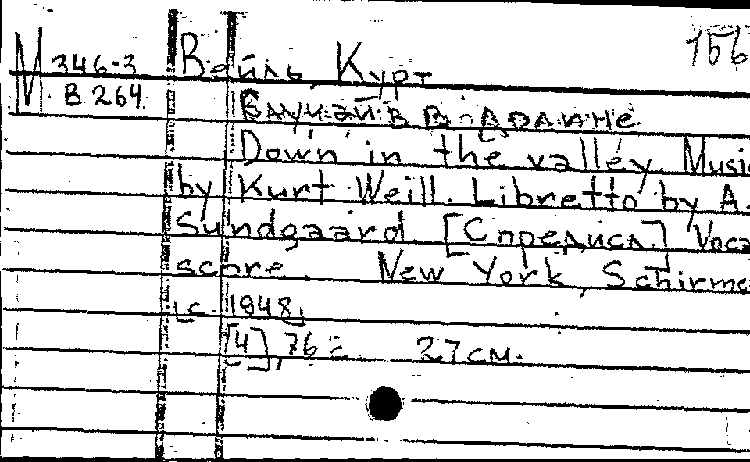 156
М 346-3 Вейль, Курт
В 264
в долине
Down in the valley. Musi
by Kurt Weill. Libretto by A.
Sundgaard. [С предисл.] Voca
score. New York, Schirme
[c 1948]
[4], 76 с. 27 см.